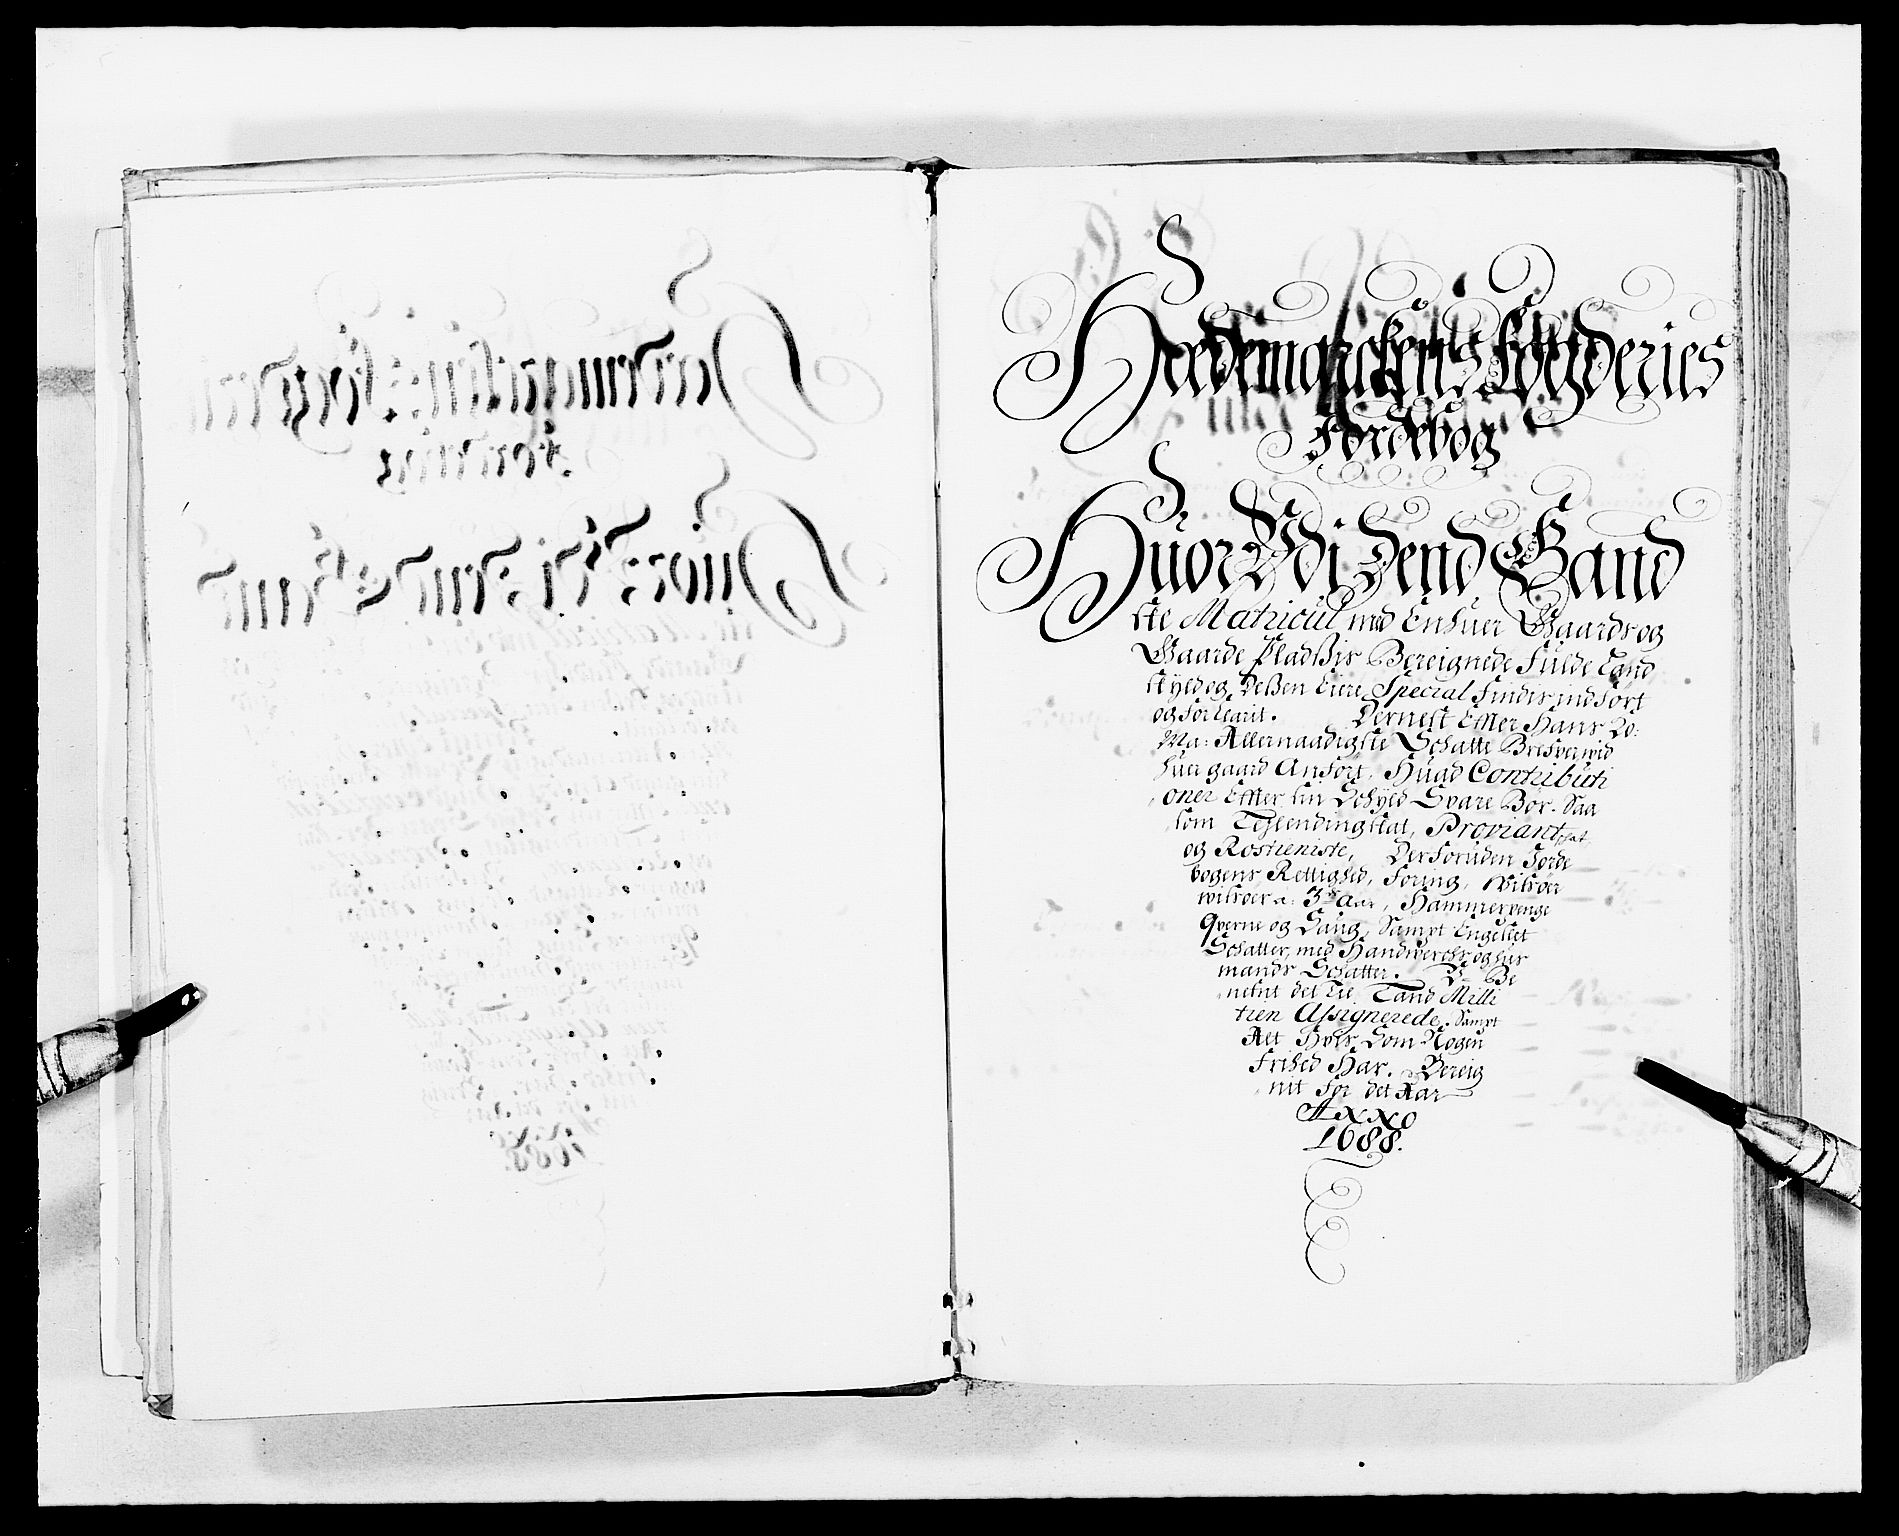 Hædemarckens Fogderies
Jordebog
Huor Udi Dend Gand
ske Matricul med Enhuer Gaards og
Gaarde Pladßis Bereignede Fulde Land
skyld og deßen Eiere Special Findis indført
og forklarit. Dernest Effter Hans Ko:
Ma: Allernaadigste Schatte Brefver, wid
huer gaard Anført, Huad Contributi
oner Effter sin Schyld Svare Bør. Saa
som Leylendingskat, Proviantskat
og Rostieniste, Derforuden Jorde
bogens Rettighed, Foring,
3de Aar, Hammerpenge
Qverne og Saug, Sampt Engeltet
Schatter, med Handwerchs og huus
mands Schatter. Be
nefnt det til Land Milli
tien Assignerede. Sampt
Alt Hvis Som Nogen
Frihed Har. Bereig
nit for det Aar
Anno
1688.